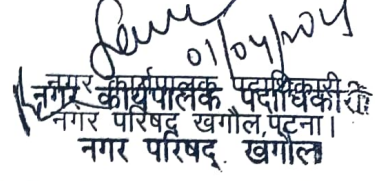 01/04/2025
नगर कार्यपालक पदाधिकारी
नगर कार्यपालक पदाधिकारी
नगर परिषद खगौल, पटना।
नगर परिषद्. खगौल